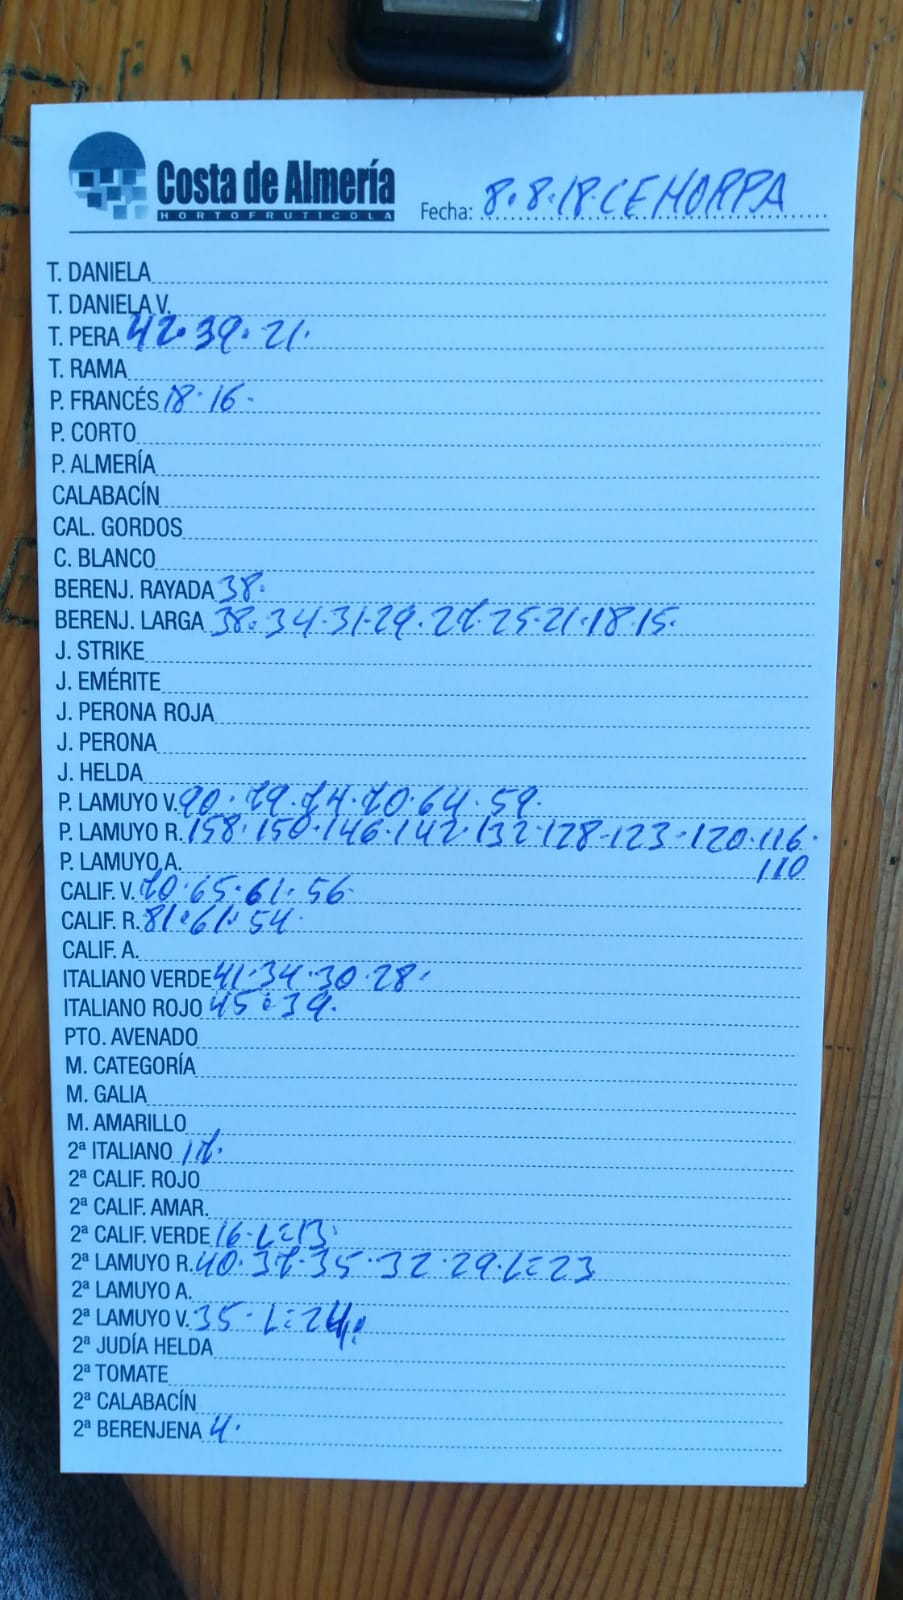 Costa de Almería
HORTOFRUTICOLA
Fecha: 8.8.18.CEHORPA
T. DANIELA
T. DANIELA V.
T. PERA 42.39.21.
T. RAMA
P. FRANCÉS 18.16.
P. CORTO
P. ALMERÍA
CALABACÍN
CAL. GORDOS
C. BLANCO
BERENJ. RAYADA 38.
BERENJ. LARGA 38.34.31.29.27.25.21.18.15.
J. STRIKE
J. EMÉRITE
J. PERONA ROJA
J. PERONA
J. HELDA
P. LAMUYO V. 90.79.74.70.64.59.
P. LAMUYO R. 158.150.146.142.132.128.123.120.116.
P. LAMUYO A. 110
CALIF. V. 70.65.61.56.
CALIF. R. 81.61.54.
CALIF. A.
ITALIANO VERDE 41.34.30.28.
ITALIANO ROJO 45.39.
PTO. AVENADO
M. CATEGORÍA
M. GALIA
M. AMARILLO
2ª ITALIANO 17.
2ª CALIF. ROJO
2ª CALIF. AMAR.
2ª CALIF. VERDE 16.L=13.
2ª LAMUYO R. 40.37.35.32.29.L=23
2ª LAMUYO A.
2ª LAMUYO V. 35.L=24.
2ª JUDÍA HELDA
2ª TOMATE
2ª CALABACÍN
2ª BERENJENA 4.